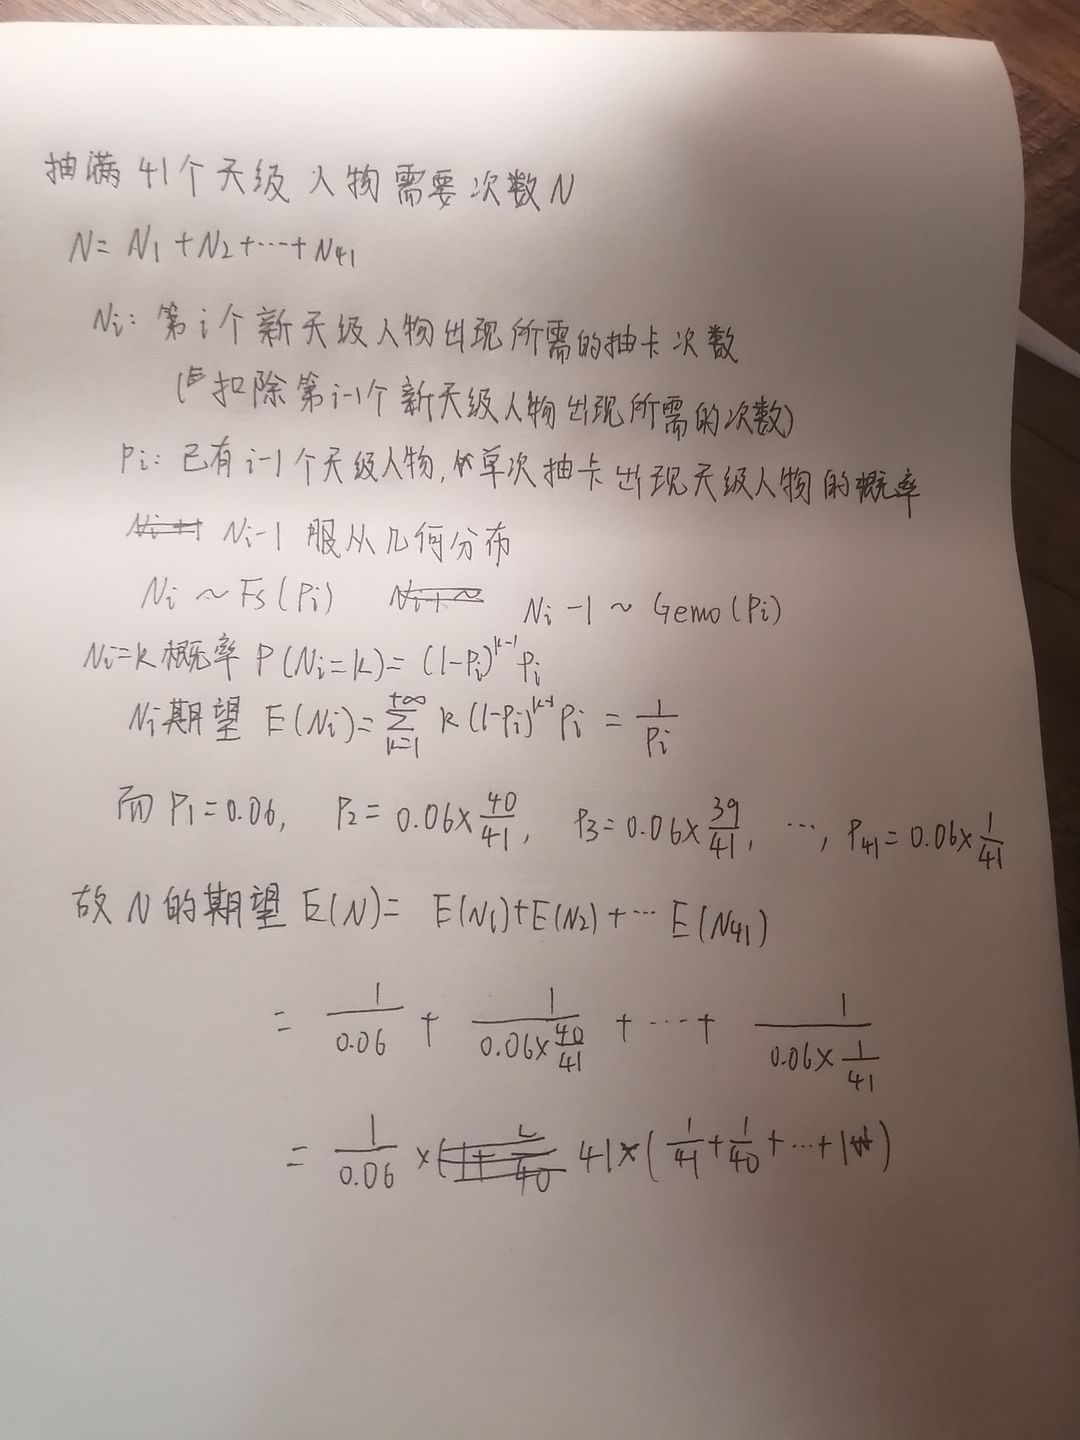 抽满41个天级人物需要次数N
N=N₁+N₂+…+N₄₁
Nᵢ: 第i个新天级人物出现所需的抽卡次数
(扣除第i-1个新天级人物出现所需的次数)
Pᵢ: 已有i-1个天级人物,单次抽卡出现天级人物的概率
Nᵢ-1 服从几何分布
Nᵢ ~ Fs(Pᵢ) Nᵢ-1 ~ Gemo(Pᵢ)
Nᵢ=k概率 P(Nᵢ=k)=(1-Pᵢ)^(k-1) Pᵢ
Nᵢ期望 E(Nᵢ)=∑_(k=1)^(+∞) k(1-Pᵢ)^(k-1) Pᵢ = 1/Pᵢ
而 P₁=0.06, P₂=0.06×40/41, P₃=0.06×39/41, …, P₄₁=0.06×1/41
故N的期望 E(N)= E(N₁)+E(N₂)+… E(N₄₁)
= 1/0.06 + 1/(0.06×40/41) + …+ 1/(0.06×1/41)
= 1/0.06 × 41×(1/41+1/40+…+1)